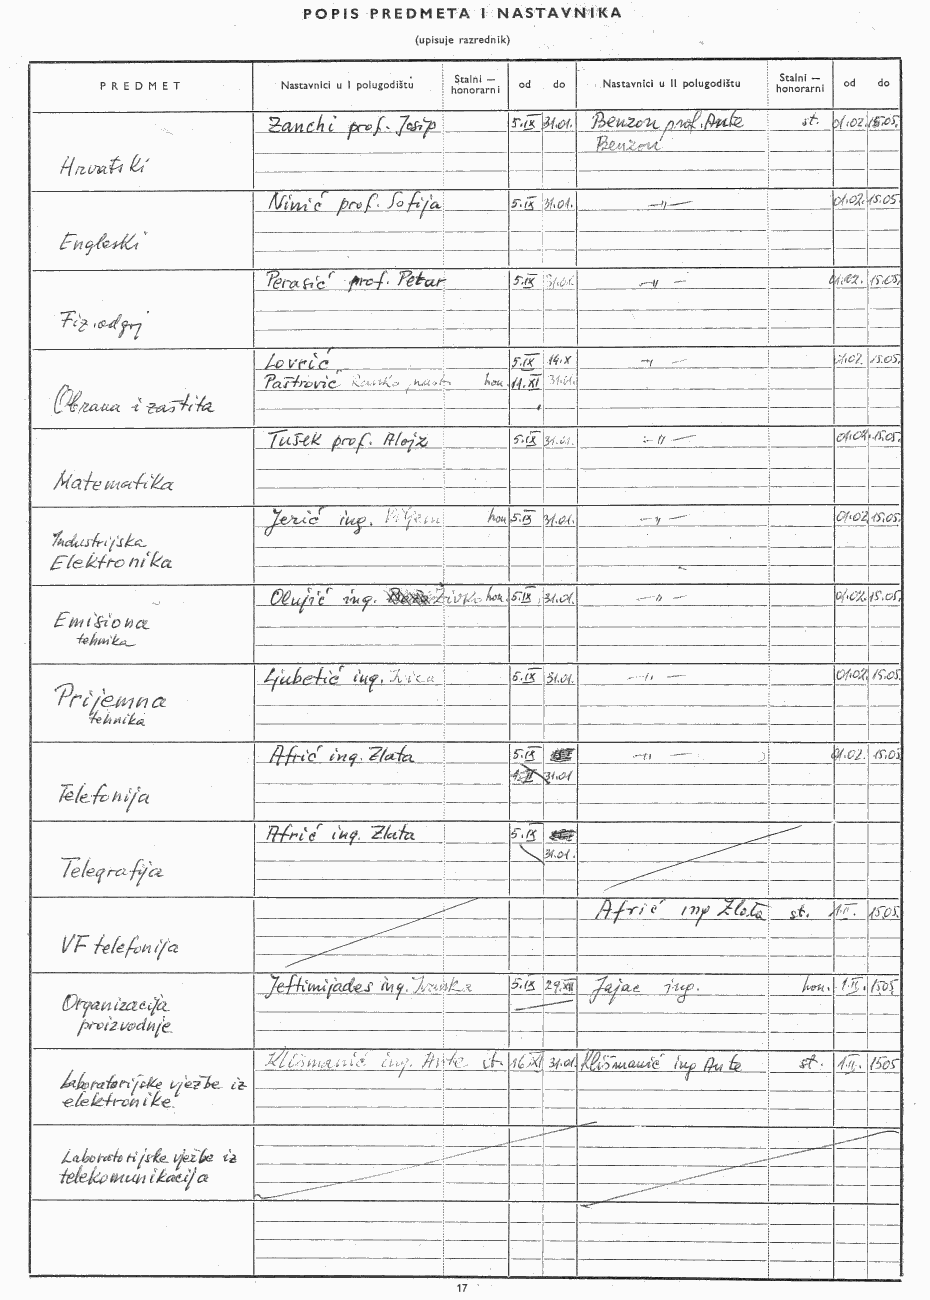 POPIS PREDMETA I NASTAVNIKA
(upisuje razrednik)
PREDMET Nastavnici u I polugodištu Stalni — honorarni od do Nastavnici u II polugodištu Stalni — honorarni od do
Zanchi prof. Josip 5.IX 31.01. Benzon prof. Ante st. 01.02. 15.05.
Benzon
Hrvatski
Ninić prof. Sofija 5.IX 31.01. —〃— 01.02. 15.05.
Engleski
Perasić prof. Petar 5.IX 31.01. —〃— 01.02. 15.05.
Fiz. odgoj
Lovrić 5.IX 14.X —〃— 01.02. 15.05.
Paštrović Ranko nast. hon. 11.XI 31.01.
Obrana i zaštita
Tušek prof. Alojz 5.IX 31.01. —〃— 01.02. 15.05.
Matematika
Jerić ing. hon. 5.IX 31.01. —〃— 01.02 15.05.
Industrijska
Elektronika
Olujić ing. Živko hon. 5.IX. 31.01. —〃— 01.02 15.05.
Emisiona
tehnika
Ljubetić ing. Ivica 5.IX 31.01. —〃— 01.02 15.05.
Prijemna
tehnika
Afrić ing. Zlata 5.IX —〃— 01.02. 15.05
31.01
Telefonija
Afrić ing. Zlata 5.IX
31.01.
Telegrafija
Afrić ing Zlata st. 1.II. 15.05.
VF telefonija
Jeftimijades ing. Ivanka 5.IX 29.XII Jajac ing. hon. 1.II. 15.05
Organizacija
proizvodnje
Klišmanić ing. Ante st. 16.XI 31.01. Klišmanić ing Ante st. 1.II. 15.05
Laboratorijske vježbe iz
elektronike
Laboratorijske vježbe iz
telekomunikacija
17